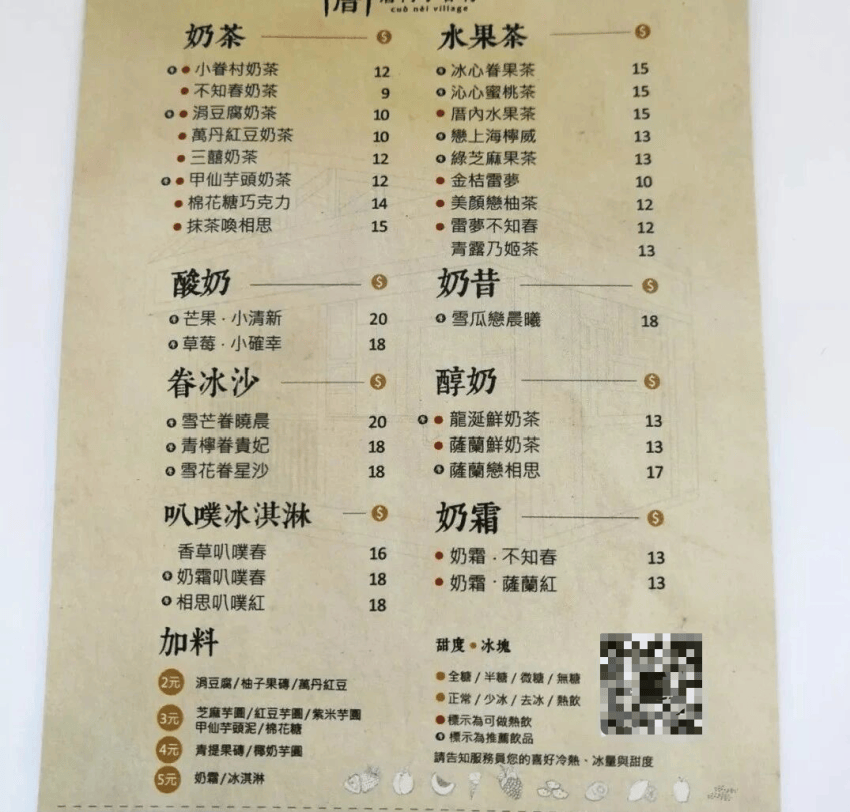 cuò nèi village
奶茶
小眷村奶茶 12
不知春奶茶 9
涓豆腐奶茶 10
萬丹紅豆奶茶 10
三囍奶茶 12
甲仙芋頭奶茶 12
棉花糖巧克力 14
抹茶喚相思 15
酸奶
芒果·小清新 20
草莓·小確幸 18
眷冰沙
雪芒眷曉晨 20
青檸眷貴妃 18
雪花眷星沙 18
叭噗冰淇淋
香草叭噗春 16
奶霜叭噗春 18
相思叭噗紅 18
加料
2元 涓豆腐/柚子果磚/萬丹紅豆
3元 芝麻芋圓/紅豆芋圓/紫米芋圓
甲仙芋頭泥/棉花糖
4元 青提果磚/椰奶芋圓
5元 奶霜/冰淇淋
水果茶
冰心眷果茶 15
沁心蜜桃茶 15
厝內水果茶 15
戀上海檸威 13
綠芝麻果茶 13
金桔雷夢 10
美顏戀柚茶 12
雷夢不知春 12
青露乃姬茶 13
奶昔
雪瓜戀晨曦 18
醇奶
龍涎鮮奶茶 13
薩蘭鮮奶茶 13
薩蘭戀相思 17
奶霜
奶霜·不知春 13
奶霜·薩蘭紅 13
甜度·冰塊
全糖/半糖/微糖/無糖
正常/少冰/去冰/熱飲
標示為可做熱飲
標示為推薦飲品
請告知服務員您的喜好冷熱、冰量與甜度